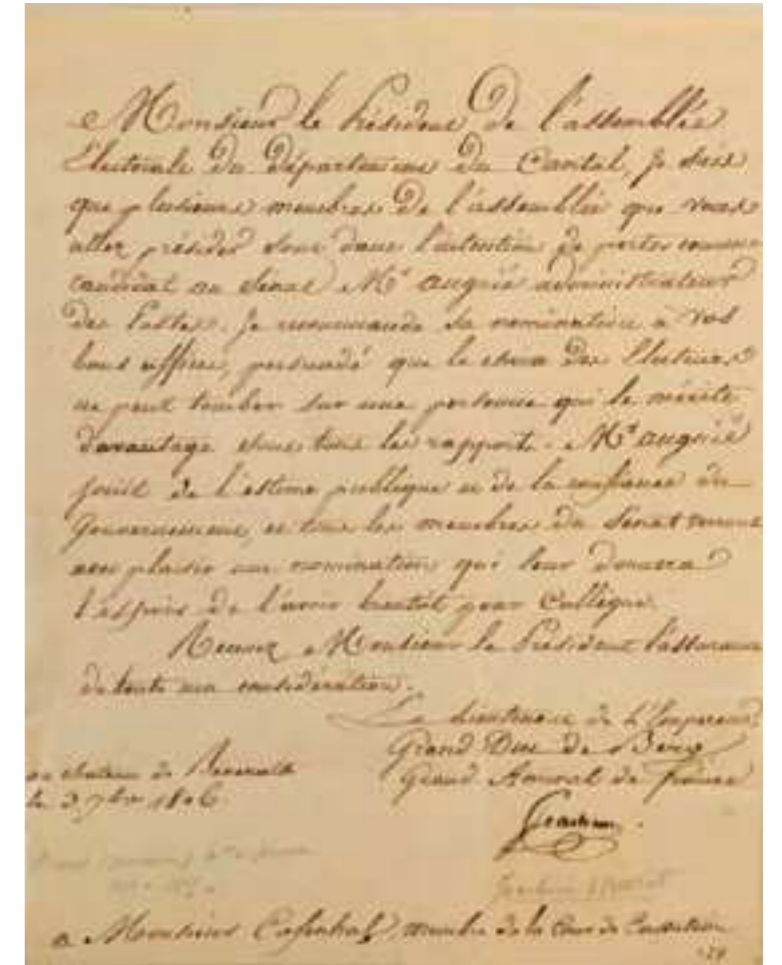 Monsieur le Président de l'assemblée
Electorale du département du Cantal, je sais
que plusieurs membres de l'assemblée que vous
allez présider sont dans l'intention de porter comme
candidat au Sénat Mr Augrié administrateur
des Postes. Je recommande sa nomination à vos
bons offices, persuadé que le choix des Electeurs
ne peut tomber sur une personne qui le mérite
d'avantage sous tous les rapports. Mr Augrié
jouit de l'estime publique et de la confiance du
Gouvernement, et tous les membres du Sénat verront
avec plaisir une nomination qui leur donnera
l'espoir de l'avoir bientôt pour Collègue.
Recevez Monsieur le Président l'assurance
de toute ma considération.
Le Lieutenant de L'Empereur
Grand Duc de Berg
Grand Amiral de france
au chateau de
le 3 7bre 1806
Joachim
Joachim Murat
a Monsieur Cofinhal, membre de la Cour de Cassation